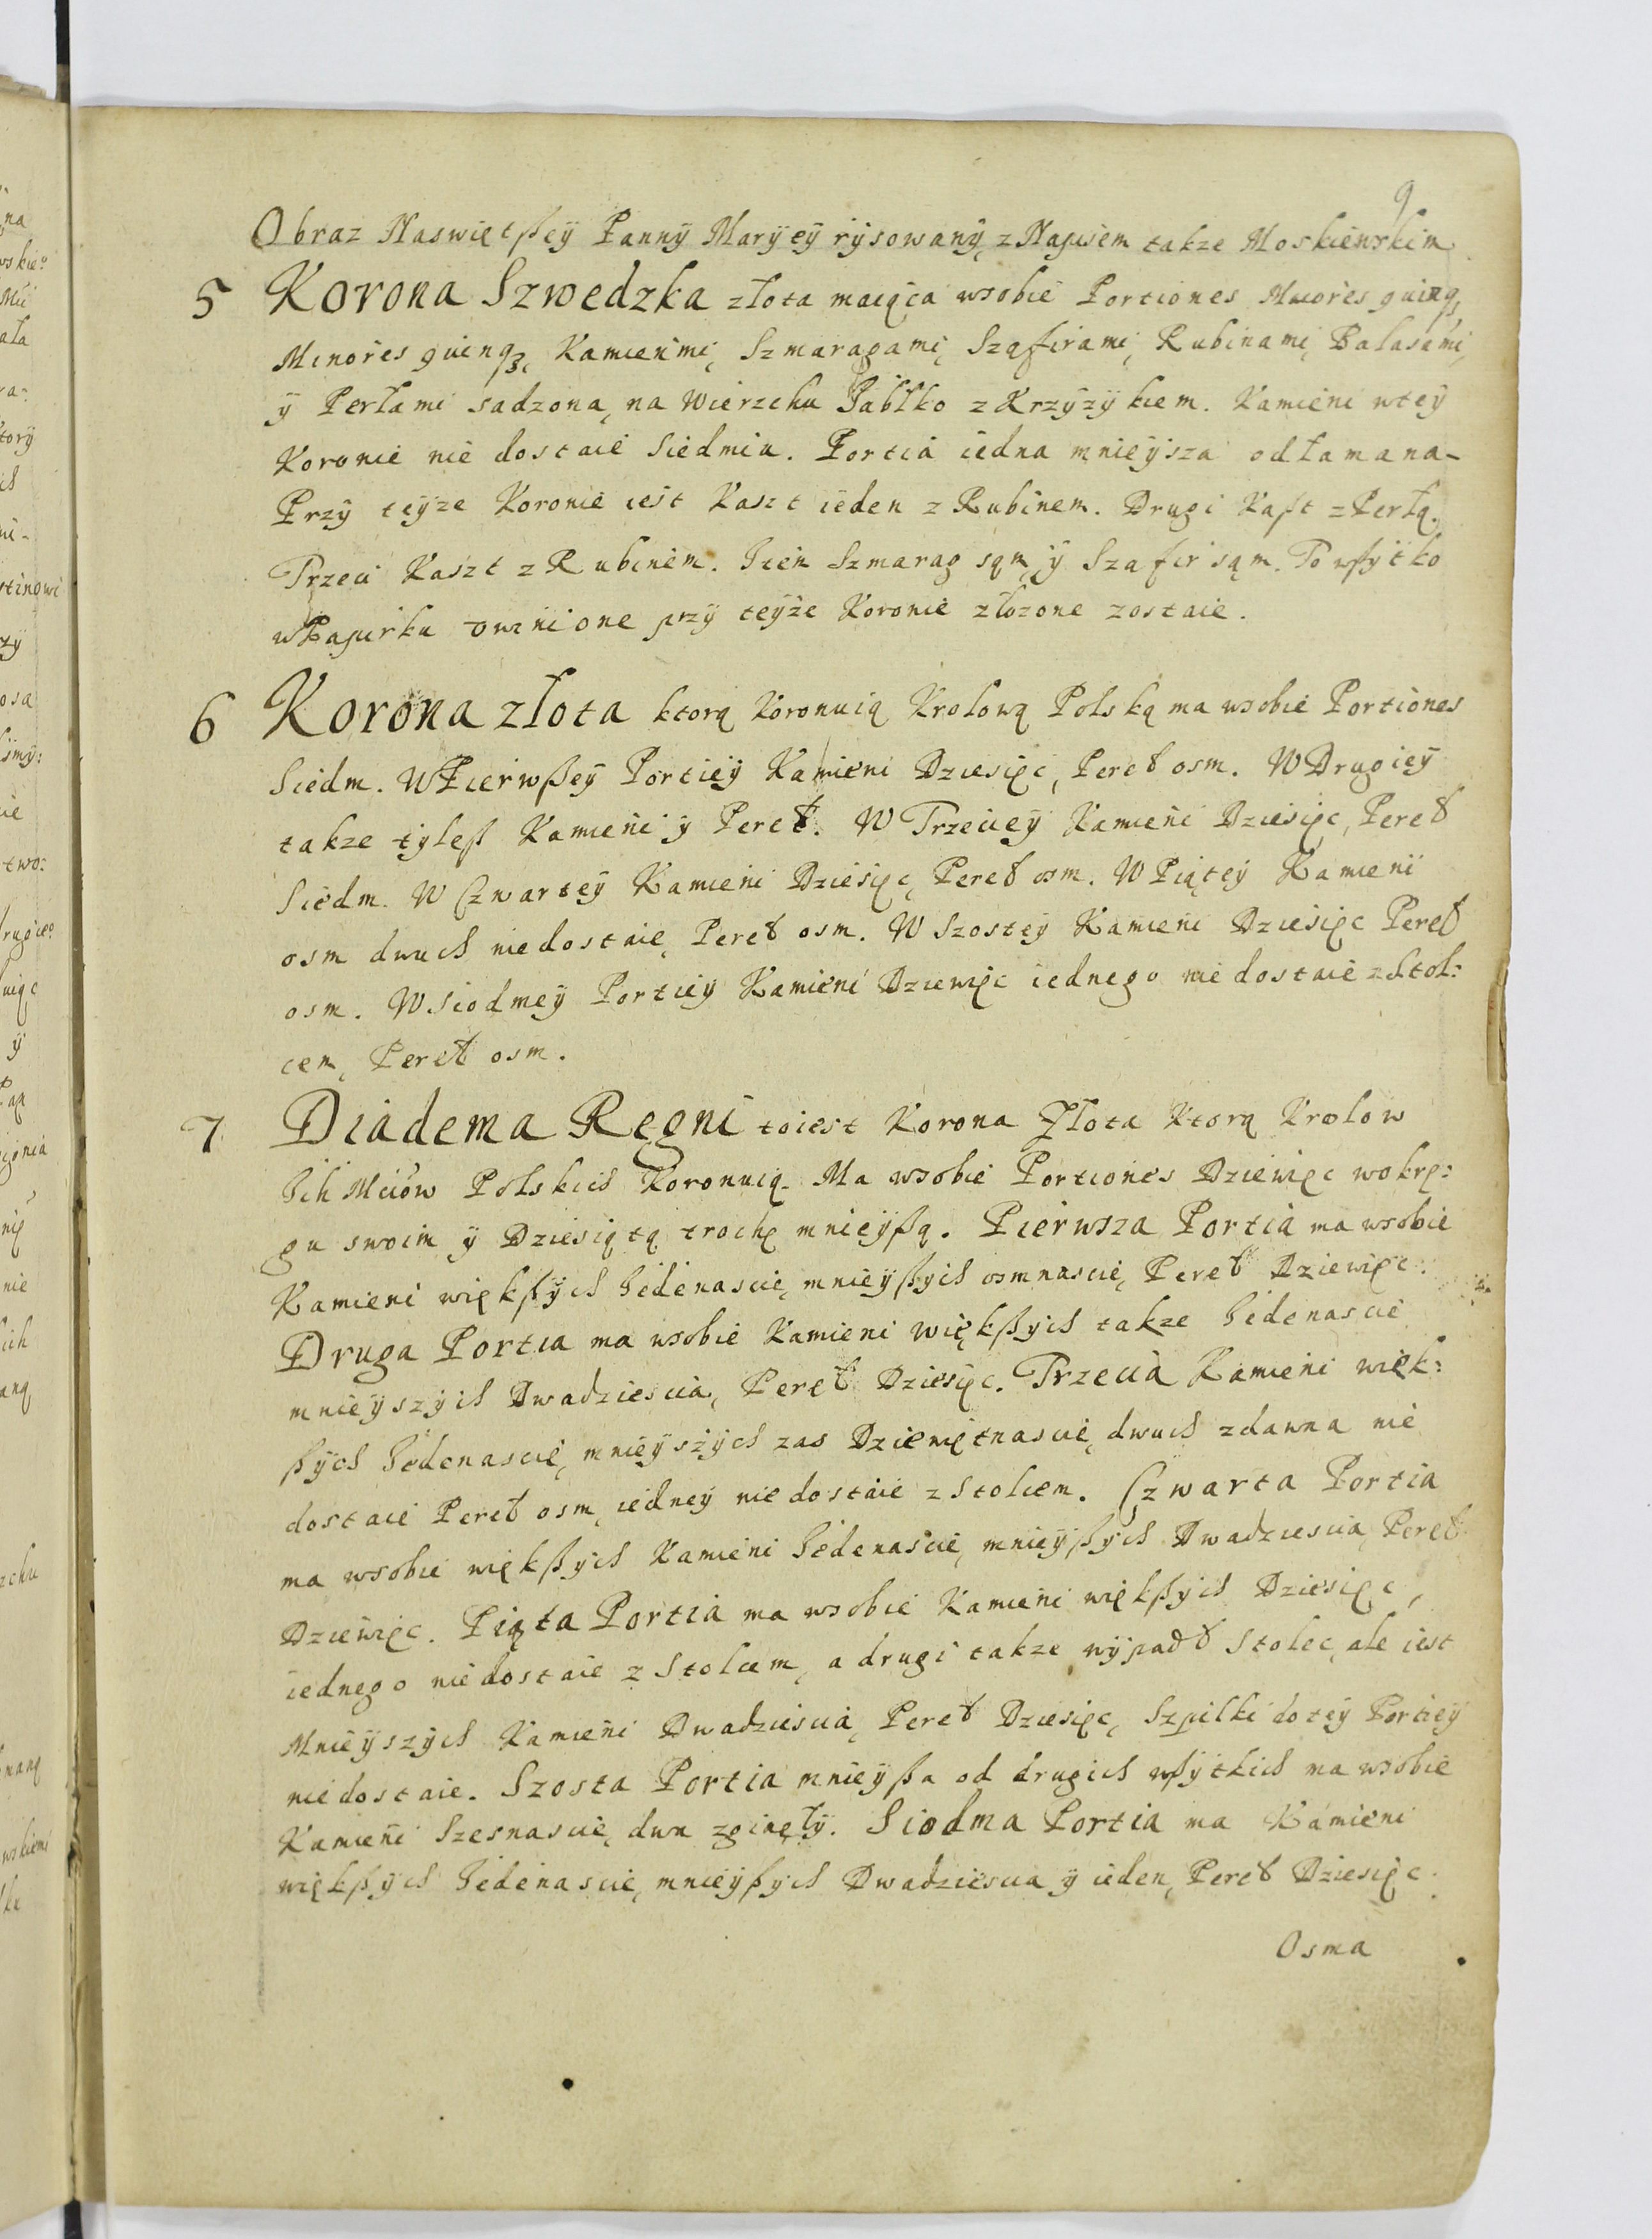 9
Obraz Naswiętßeÿ Pannÿ Marÿeÿ rÿsowanÿ, z Napisem takze Moskiewskim
5 Korona Szwedzka złota maiąca wsobie Portiones Maiores quinqꝫ
Minores quinqꝫ, Kamieńmi, Szmaragami, Szafirami, Rubinami, Balasami,
ÿ Perłami sadzona, na Wierzchu Jabłko z Krzÿzÿkiem. Kamieni wteÿ
Koronie nie dostaie Siedmiu. Portia iedna mnieÿsza odłamana-
Przÿ teÿze Koronie iest Kaszt ieden z Rubinem. Drugi Kaßt z Perłą.
Trzeci Kaszt z Rubinem. Item Szmarag sąm, ÿ Szafir sąm. To wßÿtko
w Papirku owinione przÿ teÿże Koronie złozone zostaie.
6 Korona złota ktorą Koronuią Krolową Polską ma wsobie Portiones
Siedm. W Pierwßeÿ Portieÿ Kamieni Dziesięc, Pereł osm. W Drugieÿ
takze tÿleß Kamieni ÿ Pereł. W Trzecieÿ Kamieni Dziesięc, Pereł
Siedm. W Czwarteÿ Kamieni Dziesięc, Pereł osm. W Piąteÿ Kamieni
osm dwuch niedostaie, Pereł osm. W Szosteÿ Kamieni Dziesięc Pereł
osm. W Siodmeÿ Portieÿ Kamieni Dziewięc iednego niedostaie z Stol:
cem, Pereł osm.
7 Diadema Regni toiest Korona Złota Ktorą Krolow
Ich Mciów Polskich Koronuią. Ma wsobie Portiones Dziewięc wokrę:
gu swoim ÿ Dziesiątą trochę mnieÿßą. Pierwsza Portia ma wsobie
Kamieni więkßÿch Jedenascie, mnieÿßÿch osmnascie, Pereł Dziewięc.
Druga Portia ma wsobie Kamieni więkßÿch takze Jedenascie
mnieÿszÿch Dwadziescia, Pereł Dziesięc. Trzecia Kamieni więk:
ßÿch Jedenascie, mnieÿszÿch zas Dziewiętnascie, dwuch zdawna nie
dostaie Pereł osm, iedneÿ nie dostaie z Stolcem. Czwarta Portia
ma wsobie więkßÿch Kamieni Jedenascie, mnieÿßÿch Dwadziescia, Pereł
Dziewięc. Piąta Portia ma wsobie Kamieni więkßÿch Dziesięc,
iednego nie dostaie z Stolcem, a drugi takze wÿpadł Stolec, ale iest
Mnieÿszÿch Kamieni Dwadziescia, Pereł Dziesięc, Szpilki doteÿ Portieÿ
nie dostaie. Szosta Portia mnieÿßa od drugich wßÿtkich ma wsobie
Kamieni Szesnascie, dwa zginęłÿ. Siodma Portia ma Kamieni
więkßÿch Jedenascie, mnieÿßÿch Dwadziescia ÿ ieden, Pereł Dziesięc.
Osma